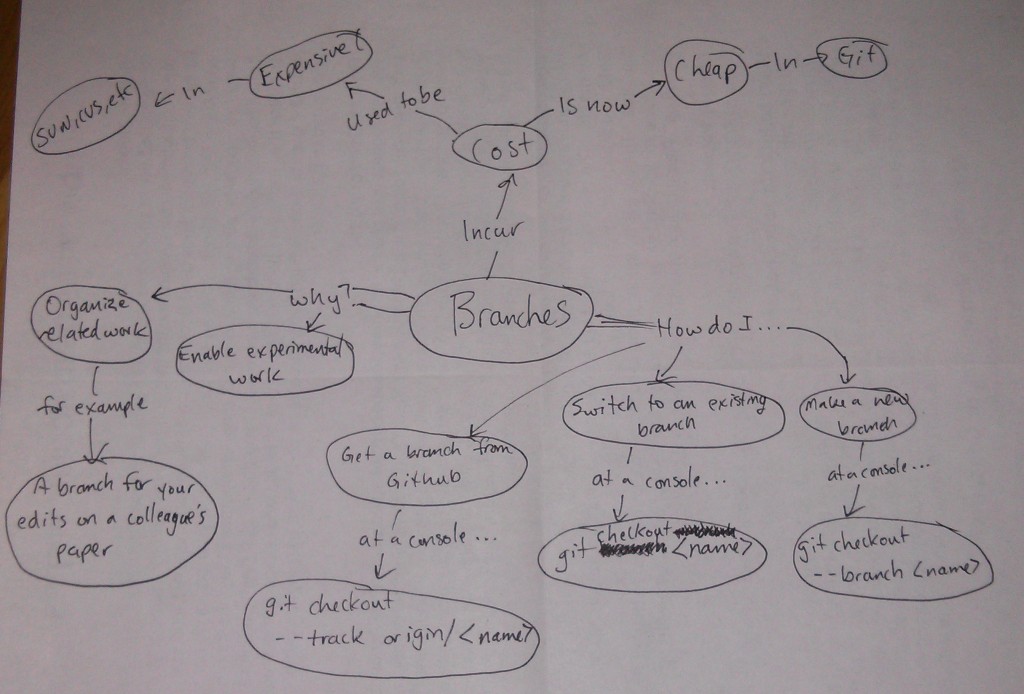 Expensive!
In
SVN, CVS, etc
Used to be
Cost
Is now
Cheap
In
Git
Incur
Branches
Why?
Organize
related work
Enable experimental
work
for example
A branch for your
edits on a colleague's
paper
How do I...
Get a branch from
Github
at a console...
git checkout
--track origin/<name>
Switch to an existing
branch
at a console...
git checkout <name>
Make a new
branch
at a console...
git checkout
--branch <name>